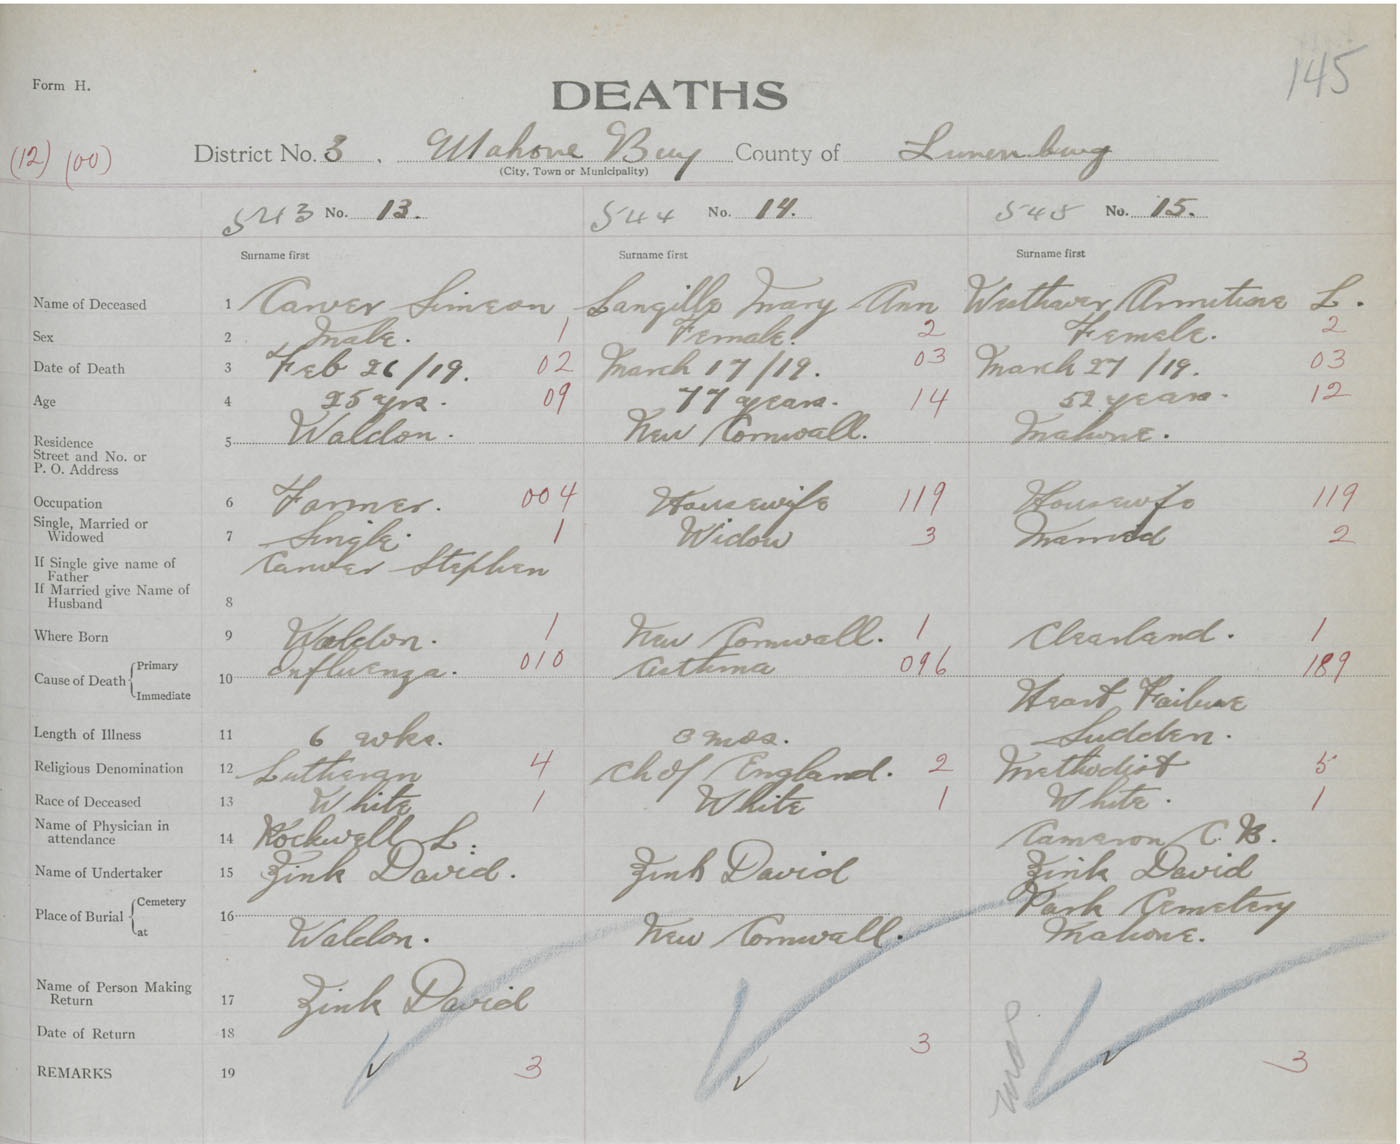 145
Form H.
DEATHS
(12) (00)
District No. 3. Mahone Bay County of Lunenburg
(City, Town or Municipality)
543 No. 13. 544 No. 14. 545 No. 15.
Surname first Surname first Surname first
Name of Deceased 1 Carver Simeon Langille Mary Ann L.
Sex 2 Male. 1 Female. 2 Female. 2
Date of Death 3 Feb 26/19. 02 March 17/19. 03 March 27/19. 03
Age 4 25 yrs. 09 77 years. 14 52 years. 12
Residence Street and No. or P. O. Address 5 Waldon. New Cornwall. Mahone.
Occupation 6 Farmer. 004 Housewife 119 Housewife 119
Single, Married or Widowed 7 Single. 1 Widow 3 Married 2
If Single give name of Father Carver Stephen
If Married give Name of Husband 8
Where Born 9 Waldon. 1 New Cornwall. 1 Clearland. 1
Cause of Death Primary 10 Influenza. 010 Asthma 096 189
Immediate Heart Failure
Length of Illness 11 6 wks. 3 mos. Sudden.
Religious Denomination 12 Lutheran 4 Ch of England. 2 Methodist 5
Race of Deceased 13 White 1 White 1 White. 1
Name of Physician in attendance 14 Rockwell L. Cameron C. B.
Name of Undertaker 15 Zink David. Zink David Zink David
Place of Burial Cemetery 16 Park Cemetery
at Waldon. New Cornwall. Mahone.
Name of Person Making Return 17 Zink David
Date of Return 18 3
REMARKS 19 3 3